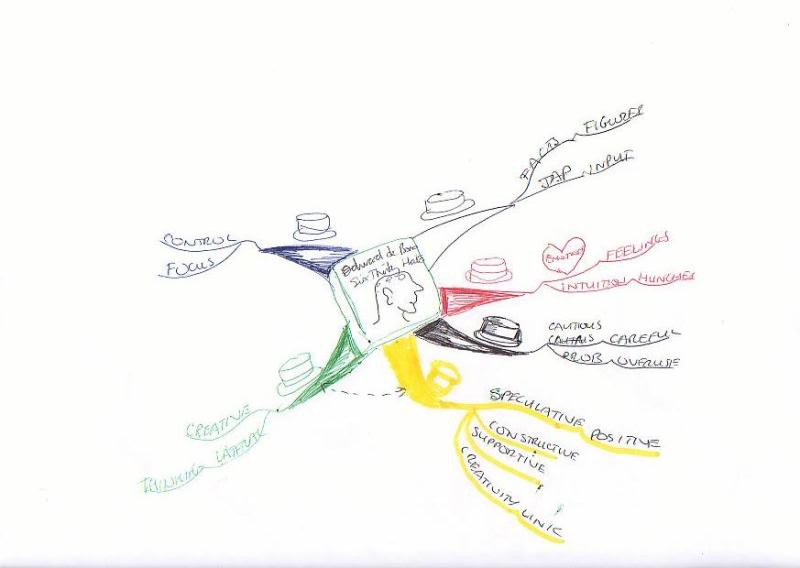 Edward de Bono
Six Think Hats
FACTS FIGURES
JAP INPUT
EMOTIONS
FEELINGS
INTUITION HUNCHES
CAUTIOUS
CAREFUL
PROB OVERUSE
SPECULATIVE POSITIVE
CONSTRUCTIVE
SUPPORTIVE
CREATIVITY LINK
CREATIVE
THINKING LATERAL
CONTROL
FOCUS